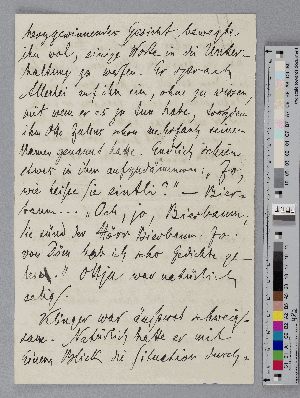 herzgewinnender Gesicht bewegte
ihn wol, einige Worte in die Unter-
haltung zu werfen. Er sprach
Allerlei auf ihn ein, ohne zu wissen,
mit wem er es zu tun habe, trotzdem
ihm Otto Julius schon mehrfach seinen
Namen genannt hatte. Endlich schien
etwas in ihm aufzudämmern: „Ja,
wie heißen Sie eintli?" — Bier-
baum... „Och, jo, Bierbaum,
Sie sünd der Herr Bierbaum. Jo.
von Dom hab ich scho Gedichte ge-
lesn." Ottju war natürlich
selig.
Klinger war äusserst schweig-
sam. Natürlich hatte er mit
einem Blick die Situation durch-